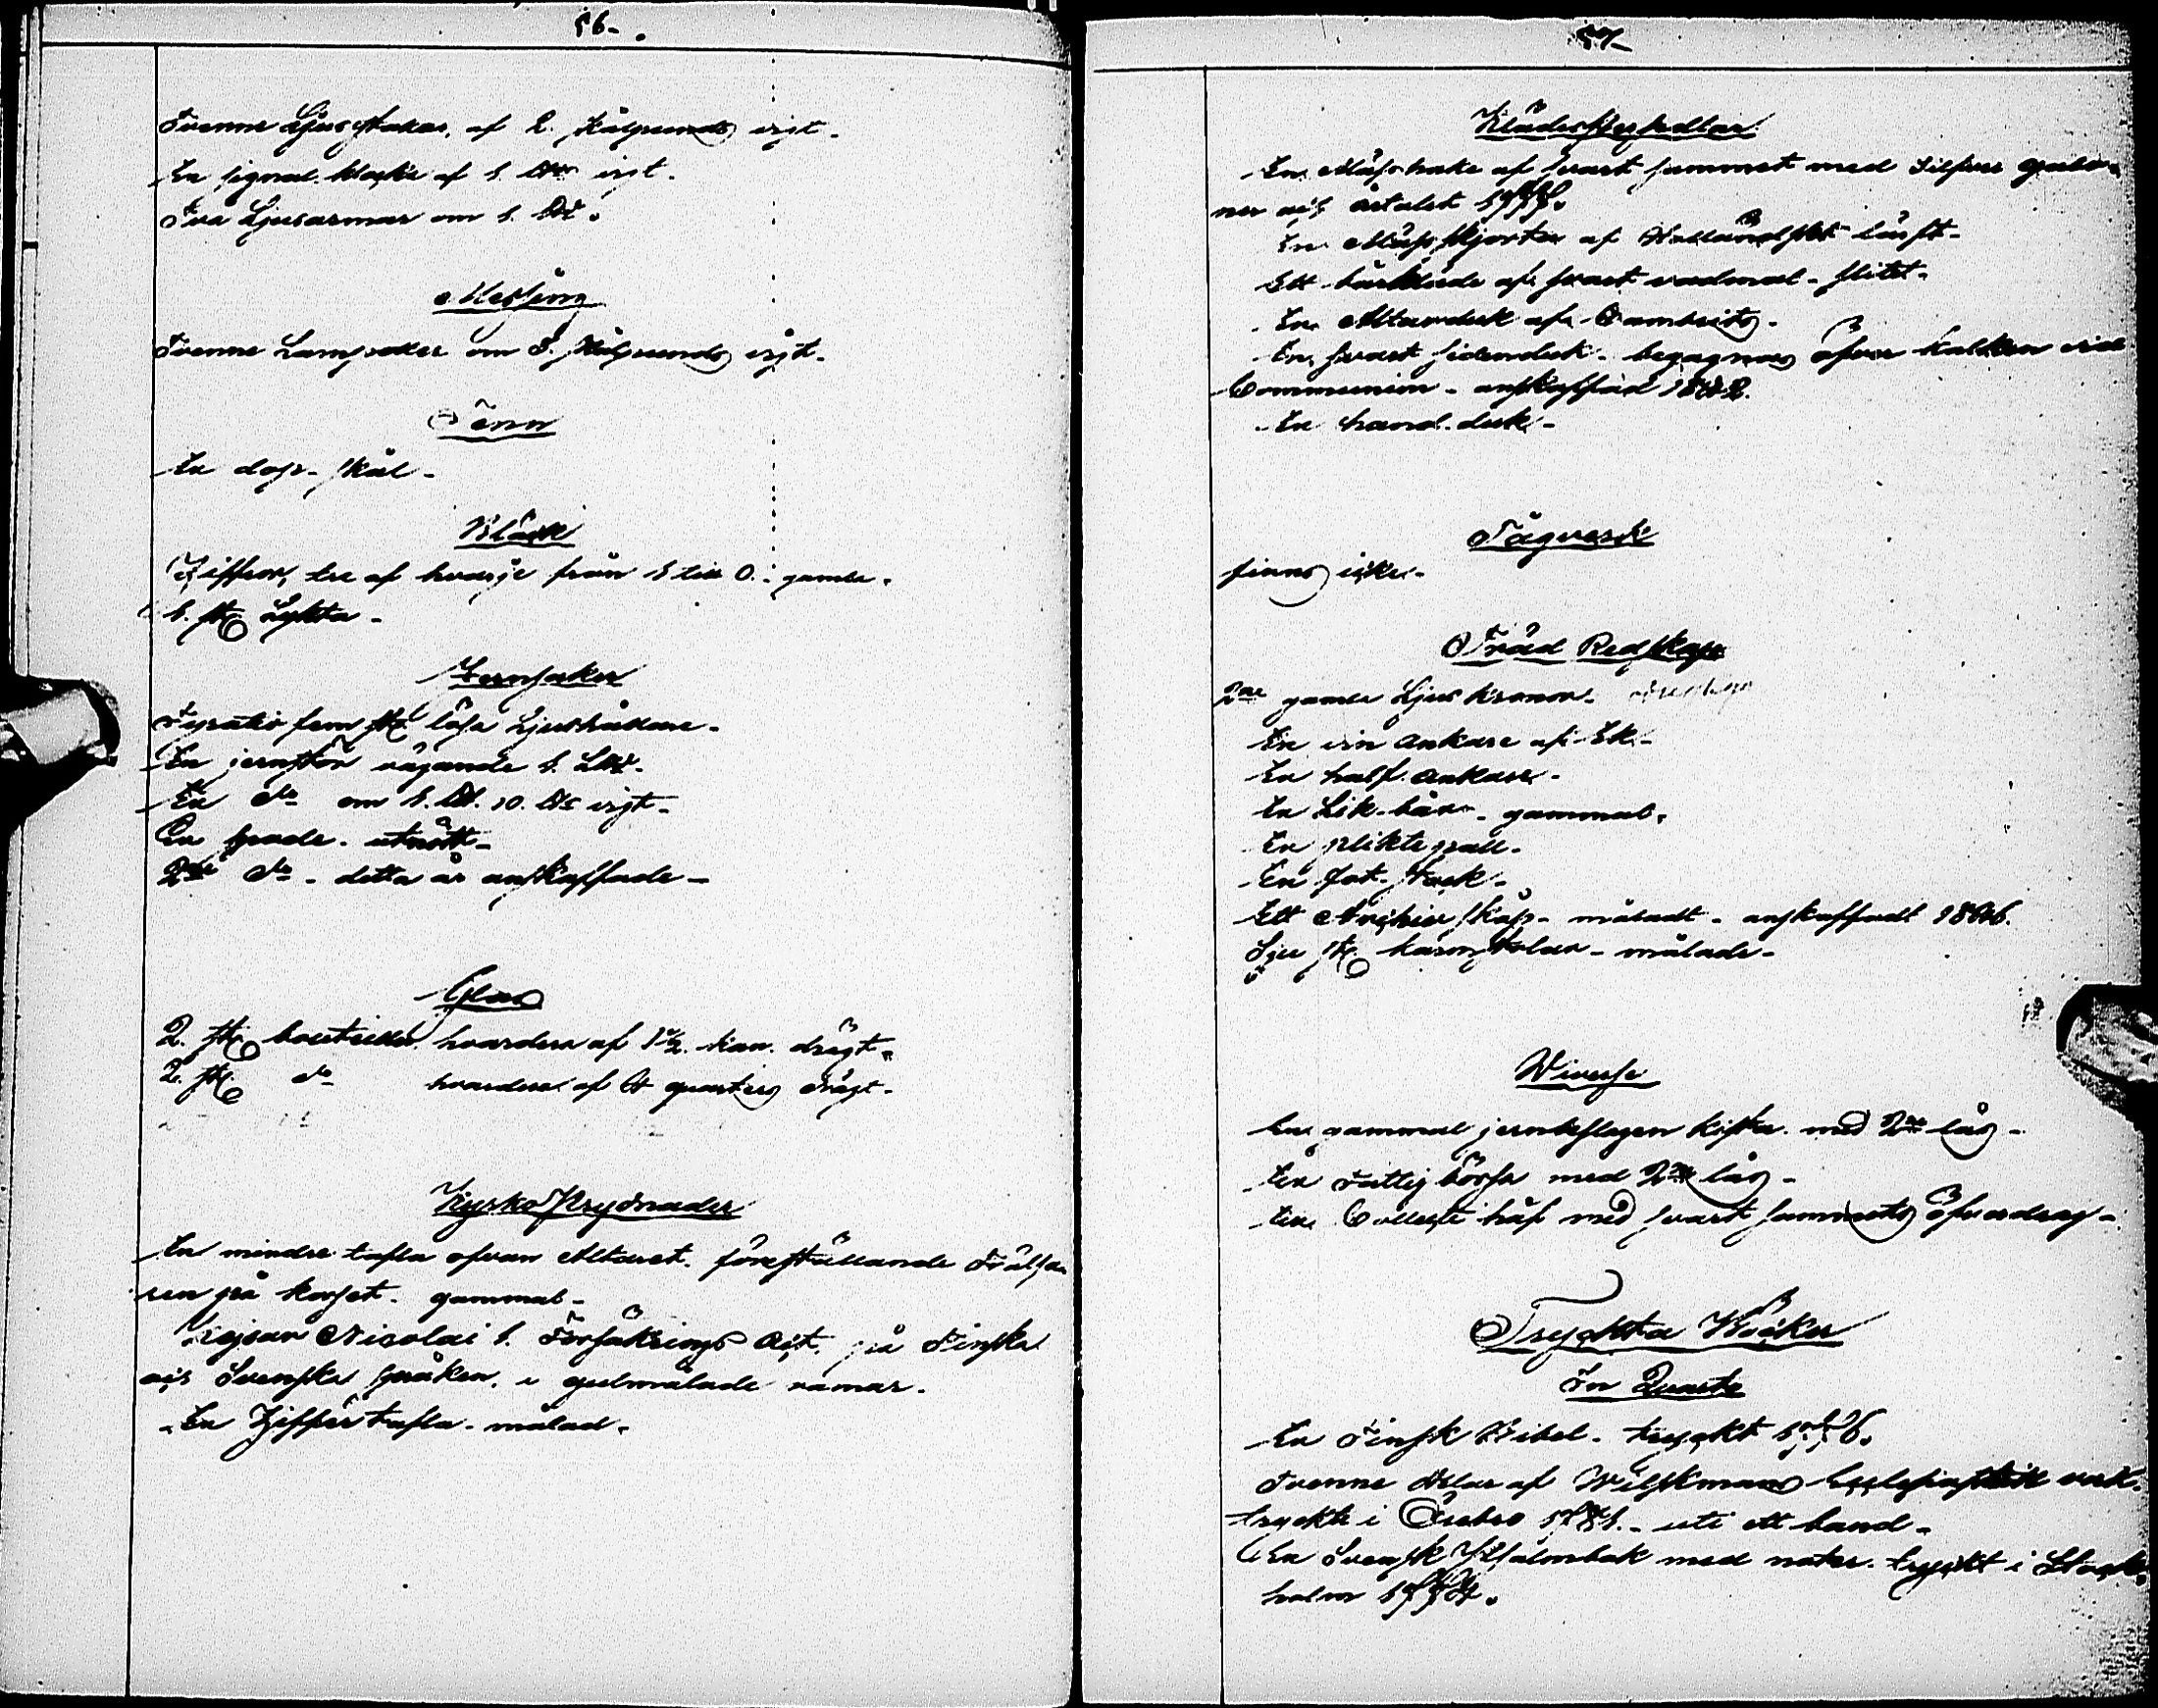 56.
Tvenne Ljusstakar, af 2. Skålpunds vigt.
En signal. klocka af 1. vigt.
Två Ljusarmar om 1.
Messing
Tvenne Lampoker om 3. Skålpunds vigt.
Tenn
En dop-skål.
Bläck
Ziffror, tre af hvarje från 1 till 0. gamla.
1. st. Lykta.
Jernsaker
Fyratio fem st. lösa Ljushållare.
En jernstör vägande 1.
En do om 1. 10. vigt.
En spade. utnött.
2ne do. detta år anskaffade.
Glas
2. st. bouteiller hvardera af 1 1/2. kan. drägt.
2. st. do hvardera af quarters drägt.
Kyrko Prydnader
En mindre tafla ofvan Altaret. föreställande Frälsa
ren på korset. gammal.
Kejsar Nicolai 1. Försäkrings Act. på Finska
och Svenska språken. i gulmålade ramar.
En Ziffertafla. målad.
57.
Klädespersedlar
En Mässhake af svart sammet med Silfver galo
ner och årtalet
En Mässskjorta af Holländskt lärft.
Ett bårkläde af svart vadmal. slitet.
En Altarduk af Cambrits.
En svart sidenduk. begagnas öfver kalken vid
Communion. anskaffad 1842.
En hand.duk.
Tågverk
finns icke.
Träd Redskap
2ne gamla Ljus kronor.
En vin ankare af Ek.
En half. ankare.
En Lik-bår. gammal.
En pliktepall.
En fot-stock.
Ett Archiv skåp. måladt. anskaffadt 1846.
Sju st. karmstolar. målade.
Diverse
En gammal jernbeslagen kista. med 2ne lås.
En Fattig börsa med 2ne lås.
En Collecte håf med svart sammets öfverdrag.
Tryckta Böcker
In Quarto
En Finsk Bibel. tryckt 1776.
Tvenne delar af Wilskmans Ecclesiastik verk.
tryckte i Örebro 1781. uti ett band.
En Svensk Psalmbok med noter. tryckt i Stock
holm